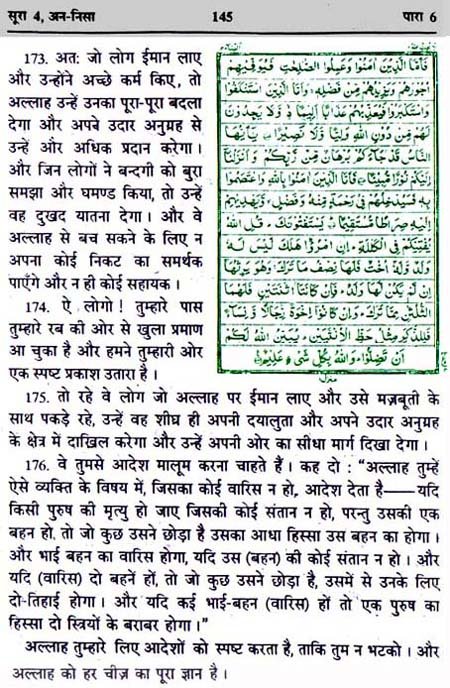 सूरा 4, अन-निसा 145 पारा 6
173. अतः जो लोग ईमान लाए
और उन्होंने अच्छे कर्म किए, तो
अल्लाह उन्हें उनका पूरा-पूरा बदला
देगा और अपने उदार अनुग्रह से
उन्हें और अधिक प्रदान करेगा।
और जिन लोगों ने बन्दगी को बुरा
समझा और घमण्ड किया, तो उन्हें
वह दुखद यातना देगा। और वे
अल्लाह से बच सकने के लिए न
अपना कोई निकट का समर्थक
पाएँगे और न ही कोई सहायक।
174. ऐ लोगो! तुम्हारे पास
तुम्हारे रब की ओर से खुला प्रमाण
आ चुका है और हमने तुम्हारी ओर
एक स्पष्ट प्रकाश उतारा है।
فَأَمَّا الَّذِينَ آمَنُوا وَعَمِلُوا الصّٰلِحٰتِ فَيُوَفِّيهِمْ
أُجُورَهُمْ وَيَزِيدُهُمْ مِّنْ فَضْلِهٖ وَأَمَّا الَّذِينَ اسْتَنْكَفُوا
وَاسْتَكْبَرُوا فَيُعَذِّبُهُمْ عَذَابًا أَلِيمًا وَّلَا يَجِدُونَ
لَهُمْ مِّنْ دُونِ اللّٰهِ وَلِيًّا وَّلَا نَصِيرًا يٰٓأَيُّهَا
النَّاسُ قَدْ جَاءَكُمْ بُرْهَانٌ مِّنْ رَّبِّكُمْ وَأَنْزَلْنَا
إِلَيْكُمْ نُورًا مُّبِينًا فَأَمَّا الَّذِينَ آمَنُوا بِاللّٰهِ وَاعْتَصَمُوا
بِهٖ فَسَيُدْخِلُهُمْ فِي رَحْمَةٍ مِّنْهُ وَفَضْلٍ وَّيَهْدِيهِمْ
إِلَيْهِ صِرَاطًا مُّسْتَقِيمًا يَسْتَفْتُونَكَ قُلِ اللّٰهُ
يُفْتِيكُمْ فِي الْكَلٰلَةِ إِنِ امْرُؤٌا هَلَكَ لَيْسَ لَهٗ
وَلَدٌ وَّلَهٗ أُخْتٌ فَلَهَا نِصْفُ مَا تَرَكَ وَهُوَ يَرِثُهَا
إِنْ لَّمْ يَكُنْ لَّهَا وَلَدٌ فَإِنْ كَانَتَا اثْنَتَيْنِ فَلَهُمَا
الثُّلُثٰنِ مِمَّا تَرَكَ وَإِنْ كَانُوا إِخْوَةً رِّجَالًا وَّنِسَاءً
فَلِلذَّكَرِ مِثْلُ حَظِّ الْأُنْثَيَيْنِ يُبَيِّنُ اللّٰهُ لَكُمْ
أَنْ تَضِلُّوا وَاللّٰهُ بِكُلِّ شَيْءٍ عَلِيمٌ
منزل
175. तो रहे वे लोग जो अल्लाह पर ईमान लाए और उसे मज़बूती के
साथ पकड़े रहे, उन्हें वह शीघ्र ही अपनी दयालुता और अपने उदार अनुग्रह
के क्षेत्र में दाख़िल करेगा और उन्हें अपनी ओर का सीधा मार्ग दिखा देगा।
176. वे तुमसे आदेश मालूम करना चाहते हैं। कह दो : “अल्लाह तुम्हें
ऐसे व्यक्ति के विषय में, जिसका कोई वारिस न हो, आदेश देता है——यदि
किसी पुरुष की मृत्यु हो जाए जिसकी कोई संतान न हो, परन्तु उसकी एक
बहन हो, तो जो कुछ उसने छोड़ा है उसका आधा हिस्सा उस बहन का होगा।
और भाई बहन का वारिस होगा, यदि उस (बहन) की कोई संतान न हो। और
यदि (वारिस) दो बहनें हों, तो जो कुछ उसने छोड़ा है, उसमें से उनके लिए
दो-तिहाई होगा। और यदि कई भाई-बहन (वारिस) हों तो एक पुरुष का
हिस्सा दो स्त्रियों के बराबर होगा।”
अल्लाह तुम्हारे लिए आदेशों को स्पष्ट करता है, ताकि तुम न भटको। और
अल्लाह को हर चीज़ का पूरा ज्ञान है।